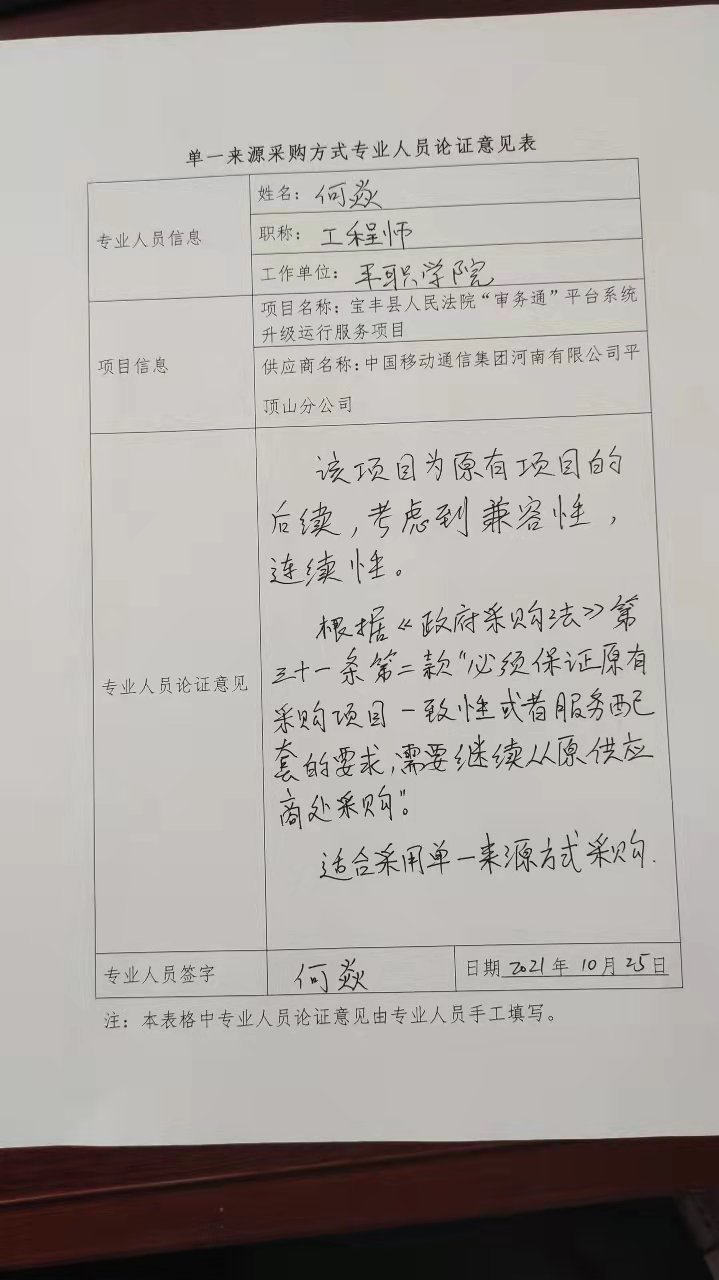 单一来源采购方式专业人员论证意见表
专业人员信息
姓名：何焱
职称：工程师
工作单位：平职学院
项目信息
项目名称：宝丰县人民法院“审务通”平台系统
升级运行服务项目
供应商名称：中国移动通信集团河南有限公司平
顶山分公司
专业人员论证意见
该项目为原有项目的
后续，考虑到兼容性，
连续性。
根据《政府采购法》第
三十一条第二款“必须保证原有
采购项目一致性或者服务配
套的要求，需要继续从原供应
商处采购”。
适合采用单一来源方式采购.
专业人员签字
何焱
日期 2021年 10月 25日
注：本表格中专业人员论证意见由专业人员手工填写。